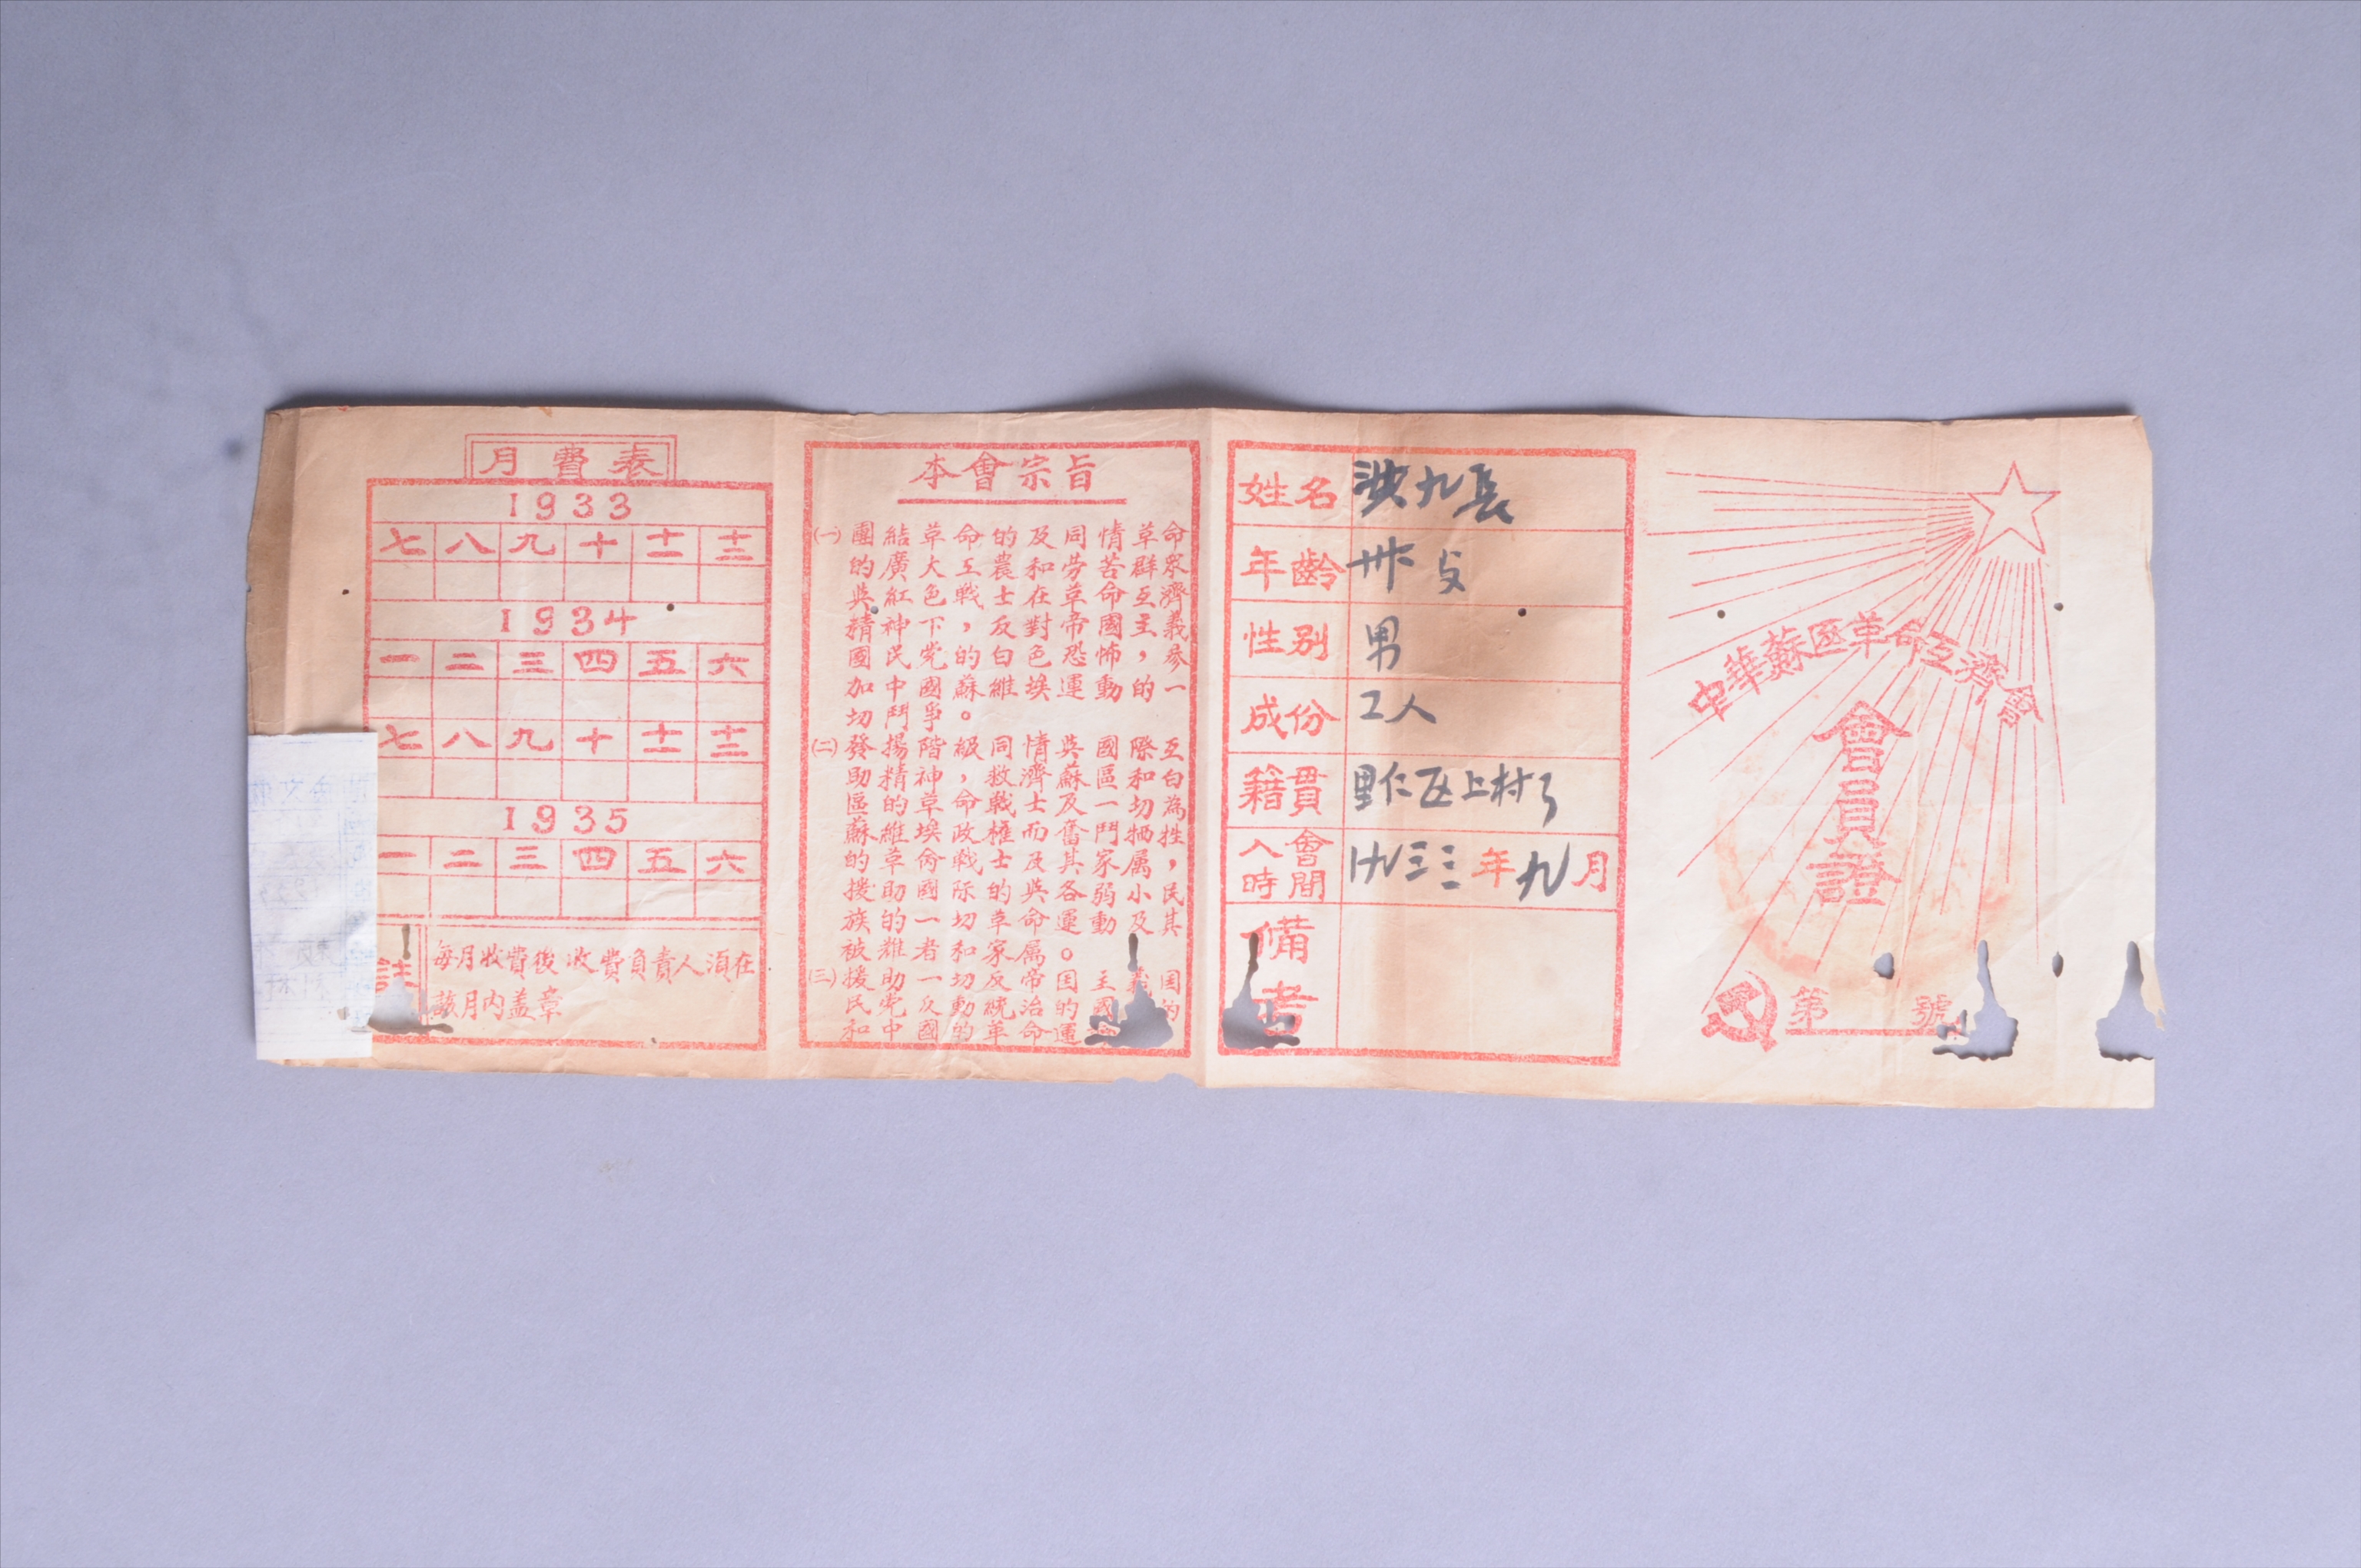 月費表
1933
七 八 九 十 十一 十二
1934
一 二 三 四 五 六
七 八 九 十 十一 十二
1935
一 二 三 四 五 六
註
每月收費後收費負責人須在
該月內盖章
本會宗旨
㈠ 團結草命的及同情草命
的廣大工農和勞苦群眾
與紅色戰士在草命互濟
精神下,反對帝國主義
國民党的白色恐怖,參
加中國蘇維埃運動的一
切鬥爭。
㈡ 發揚階級同情與國際互
助精神,救濟蘇區和白
區的草命戰士及一切為
蘇維埃政權而奮鬥牺牲
的草命戰士及其家属,
援助國际的與各弱小民
族的一切草命運動及其
被难者和家属。
㈢ 援助一切反帝国主義国
民党反動統治的國的
和中國的革命運
姓名 洪九長
年齡 卅 岁
性别 男
成份 工人
籍貫 里仁区上村
入會時間 一九三三年九月
備考
中華蘇區革命互濟會
會員證
第 號